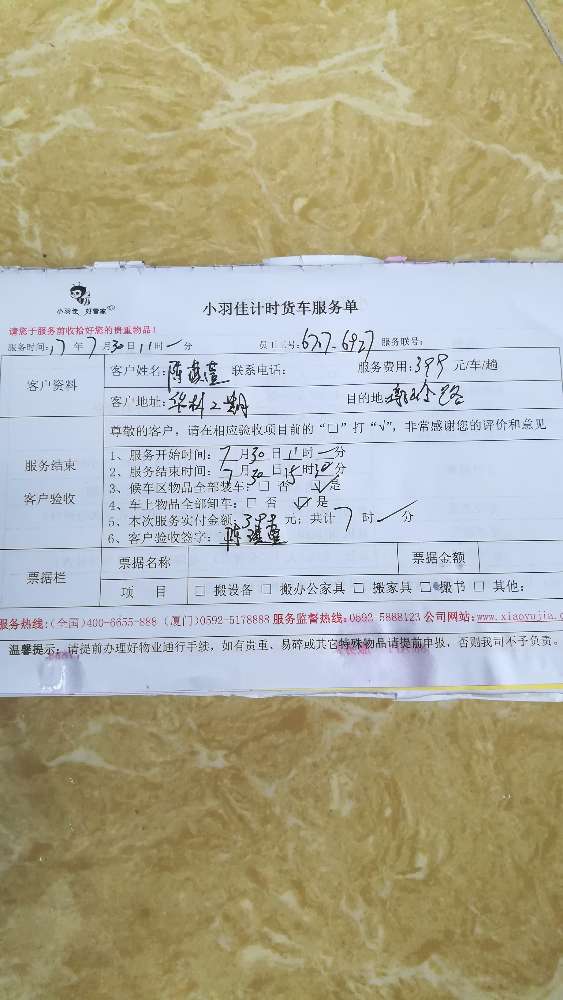 小羽佳 好管家
小羽佳计时货车服务单
请您于服务前收拾好您的贵重物品!
服务时间: 17年7月30日11时 分 员工工号: 服务联号:
客户资料
客户姓名:陈 联系电话: 服务费用:399元/车/趟
客户地址: 二期 目的地 路
尊敬的客户,请在相应验收项目前的“□”打“√”,非常感谢您的评价和意见
服务结束
客户验收
1、服务开始时间:7月30日11时 分
2、服务结束时间:7月30日15时30分
3、候车区物品全部装车:□ 否 √是
4、车上物品全部卸车:□ 否 √是
5、本次服务实付金额:399元;共计7时 分
6、客户验收签字:陈
票据栏
票据名称 票据金额
项 目 □ 搬设备 □ 搬办公家具 □ 搬家具 □ 搬书 □ 其他:
服务热线:(全国)400-6655-888 (厦门)0592-5178888 服务监督热线:0592-5888123 公司网站:www.xiaoyujia.com
温馨提示:请提前办理好物业进行手续,如有贵重、易碎或其它特殊物品请提前申报,否则我司不予负责。